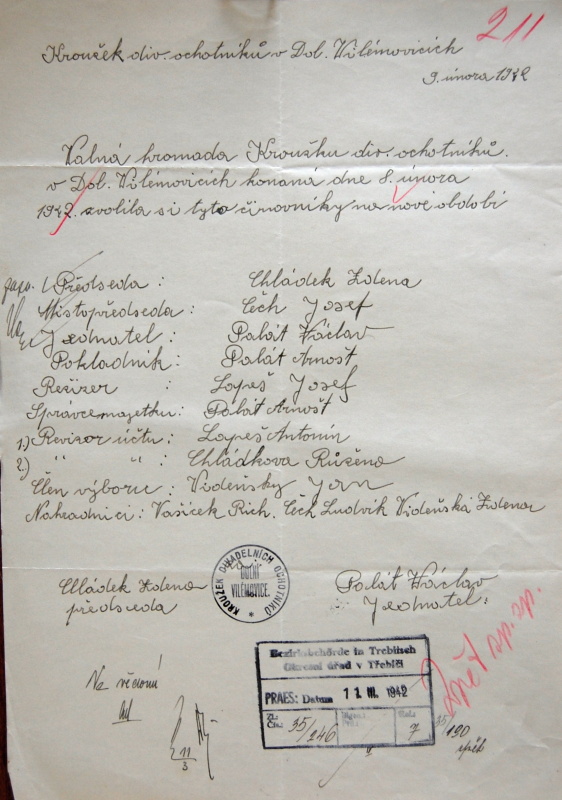 211
Kroužek div. ochotníků v Dol. Vilémovicích
9. února 1942
Valná hromada Kroužku div. ochotníků
v Dol. Vilémovicích konaná dne 8. února
1942 zvolila si tyto činovníky na nové období
Předseda : Chládek Zdena
Místopředseda : Čech Josef
Jednatel : Palát Václav
Pokladník : Palát Arnošt
Režizer : Lapeš Josef
Správce majetku : Palát Arnošt
1.) Revizor účtu : Lapeš Antonín
2.) " " : Chládkova Růžena
Člen výboru : Vídeňsky Jan
Nahradníci : Vašicek Rich. Čech Ludvík Vídeňská Zdena
Chládek Zdena
předseda
KROUŽEK DIVADELNÍCH OCHOTNÍKŮ
DOLNÍ
VILÉMOVICE
Palát Václav
Jednatel :
Bezirksbehörde in Trebitsch
Okresní úřad v Třebíči
PRAES: Datum 11 III. 1942
Zl.:
Čís.: 35/246
7
Zpět sp. zp.
Na vědomí
11
3
35/190
zpět